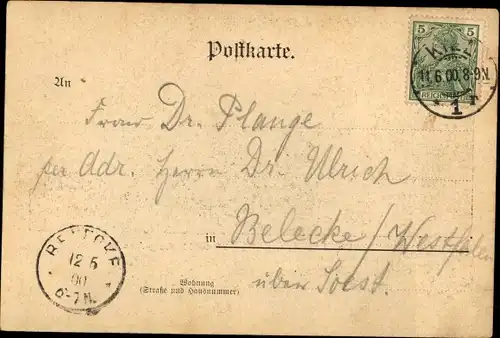 Postkarte.
5 5
REICHSPOST
KIEL
11.6.00.8-9N.
* 1 *
An
Frau Dr. Plange
per Adr. Herrn Dr. Ulrich
in Belecke/Westfalen
über Soest.
Wohnung
(Straße und Hausnummer)
BELECKE
12 6
00
6-7N.